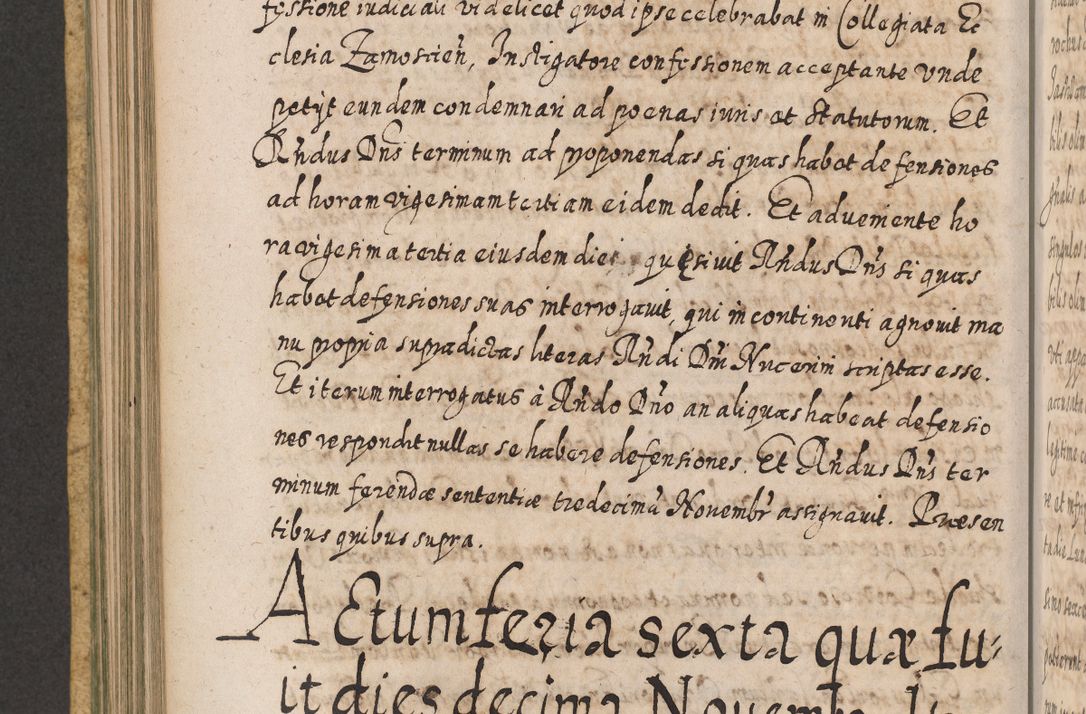 fessione iudiciali videlicet quod ipse celebrabat in Collegiata Ec
clesia Zamoscien̄, Instigatore confessionem acceptante unde
petijt eundem condemnari ad poenas iuris et statutorum. Et
Rn̄dus Dn̄s terminum ad proponendas si quas habet defensiones
ad horam vigesimam tertiam eidem dedit. Et adveniente ho
ra vigesima tertia eiusdem diei quęsivit Rn̄dus Dn̄s si quas
habet defensiones suas interrogavit, qui in continenti agnovit ma
nu propria supradictas literas Rn̄di Dn̄i Nucerin scriptas esse.
Et iterum interrogatus à Rn̄do Dn̄o an aliquas habeat defensio
nes respondit nullas se habere defensiones. Et Rn̄dus Dn̄s ter
minum ferendæ sententiæ tredecimā Novembr̄ assignavit. Præsen
tibus quibus supra.
Actum feria sexta quæ fu-
it dies decima Novembr